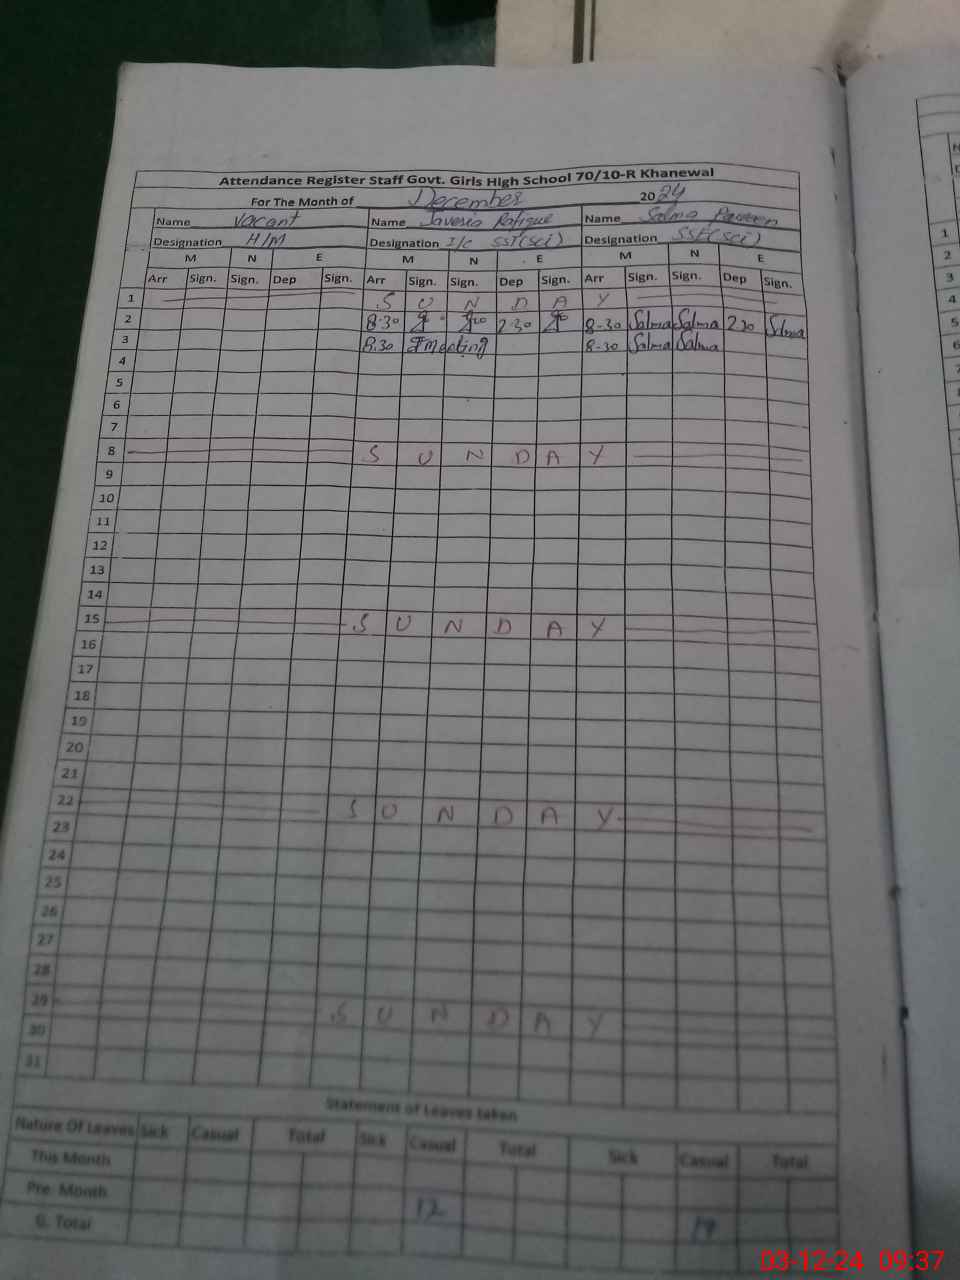 Attendance Register Staff Govt. Girls High School 70/10-R Khanewal
For The Month of December 2024
Name Vacant Name Javeria Rafique Name Salma Parveen
Designation H/M Designation I/C SST(Sci) Designation SST(Sci)
M N E M N E M N E
Arr Sign. Sign. Dep Sign. Arr Sign. Sign. Dep Sign. Arr Sign. Sign. Dep Sign.
1 S U N D A Y
2 8-30 2-30 8-30 Salma Salma 2-30 Salma
3 8.30 meeting 8-30 Salma Salma
4
5
6
7
8 S U N D A Y
9
10
11
12
13
14
15 S U N D A Y
16
17
18
19
20
21
22 S U N D A Y
23
24
25
26
27
28
29 S U N D A Y
30
31
Statement of Leaves taken
Nature Of Leaves Sick Casual Total Sick Casual Total Sick Casual Total
This Month
Pre: Month 12
G. Total
1
2
3
4
5
6
03-12-24 09:37